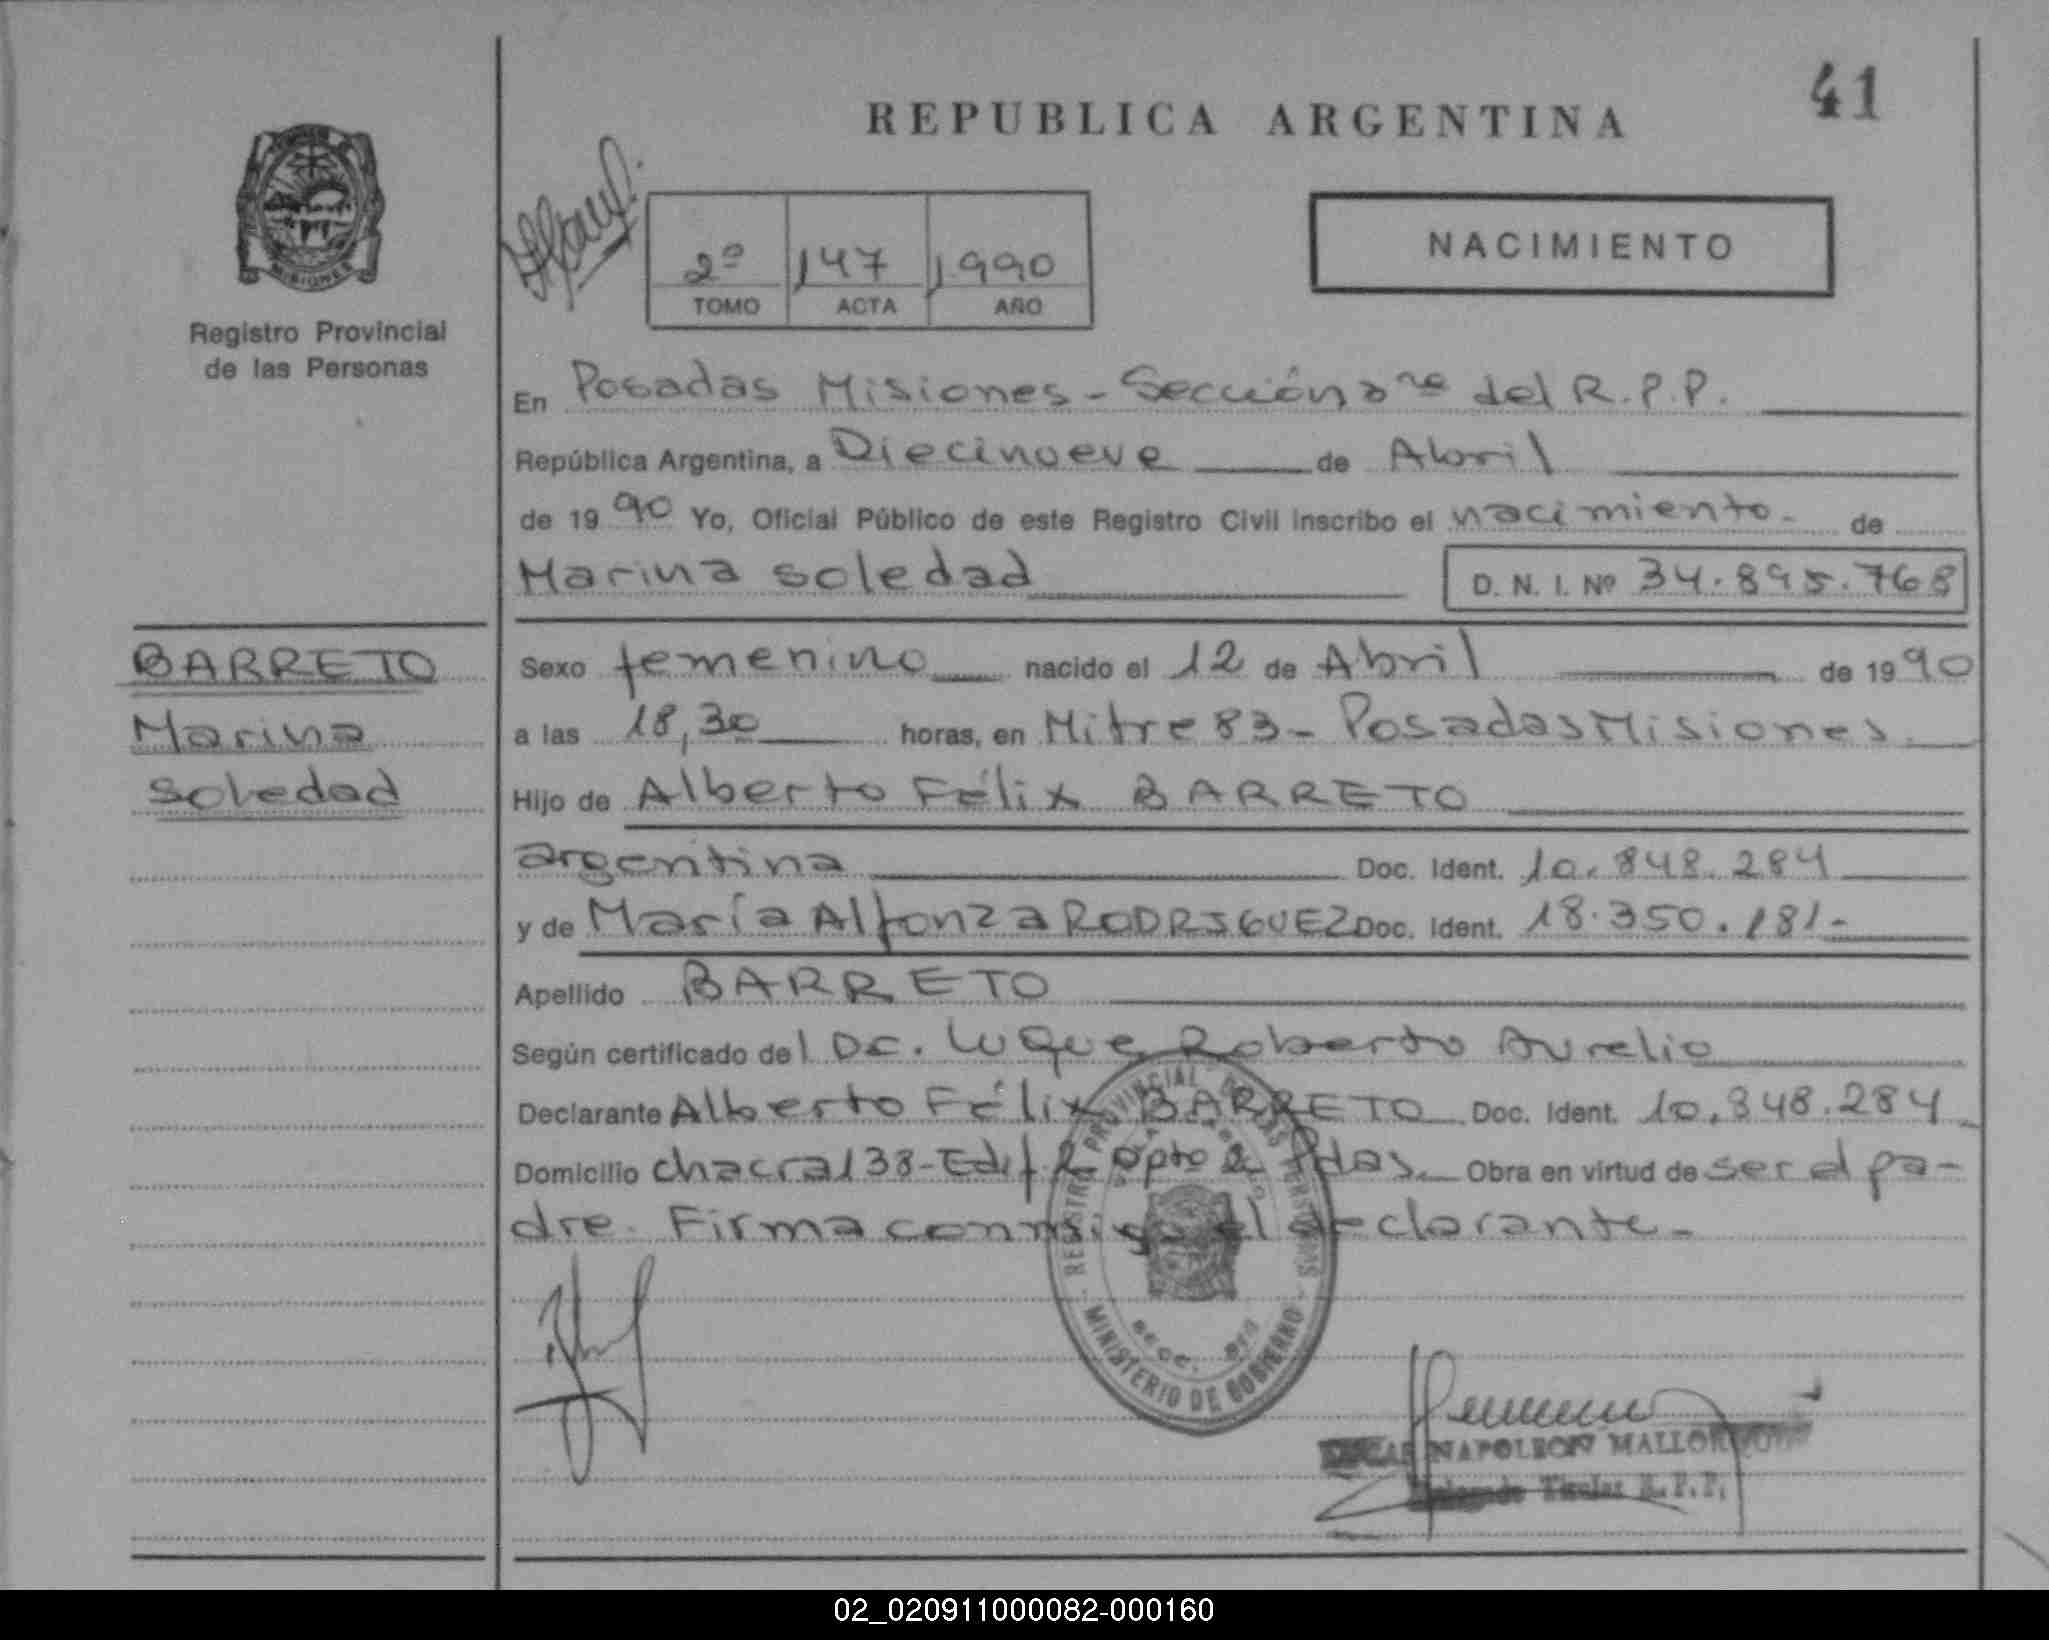 41
REPUBLICA ARGENTINA
MISIONES
Registro Provincial
de las Personas
2º 147 1990
TOMO ACTA AÑO
NACIMIENTO
En Posadas Misiones - Sección del R.P.P.
República Argentina, a Diecinueve de Abril
de 1990 Yo, Oficial Público de este Registro Civil inscribo el nacimiento - de
Marina Soledad D. N. I. Nº 34.895.768
BARRETO
Marina
Soledad
Sexo femenino nacido el 12 de Abril de 1990
a las 18,30 horas, en Mitre 83 - Posadas Misiones
Hijo de Alberto Félix BARRETO
argentina Doc. Ident. 10.848.284
y de María Alfonza RODRIGUEZ Doc. Ident. 18.350.181-
Apellido BARRETO
Según certificado del Dr. Luque Roberto Aurelio
Declarante Alberto Félix BARRETO Doc. Ident. 10.848.284
Domicilio chacra 138 - Edif. 2 Dpto 2 Pdas. Obra en virtud de ser el pa-
dre. Firma conmigo el declarante -
REGISTRO PROVINCIAL DE LAS PERSONAS
MINISTERIO DE GOBIERNO
NAPOLEON
Delegado Titular R.P.P.
02_020911000082-000160